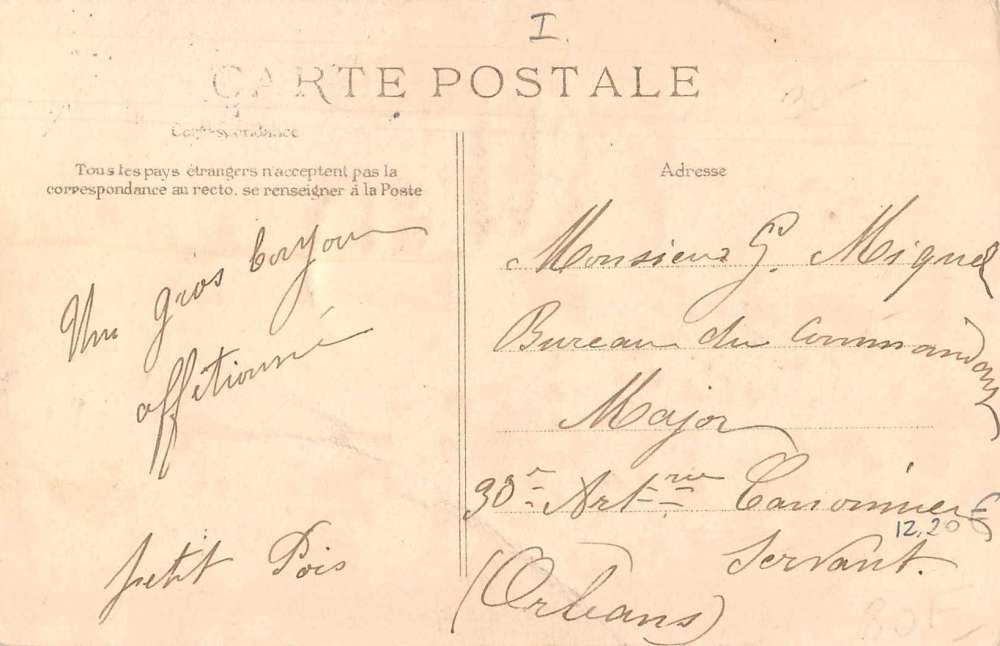 I.
CARTE POSTALE
Correspondance
Tous les pays étrangers n'acceptent pas la
correspondance au recto. se renseigner à la Poste
Un gros bonjour
affétionné
petit Pois
Adresse
Monsieur G. Miquel
Bureau du Commandant
Major
30e Art.rie Canonnier
12,20 €
Servant.
(Orléans)
80F